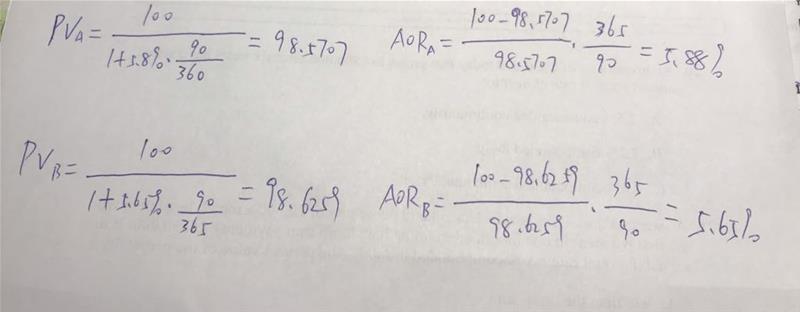 PV_A = 100 / (1+5.8%·90/360) = 98.5707 AOR_A = (100-98.5707)/98.5707 · 365/90 = 5.88%
PV_B = 100 / (1+5.65%·90/365) = 98.6259 AOR_B = (100-98.6259)/98.6259 · 365/90 = 5.65%